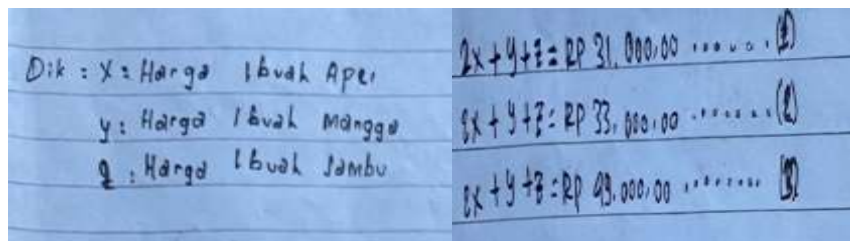 Dik : x = Harga 1 buah Apel
y : Harga 1 buah Mangga
z : Harga 1 buah Jambu
2x + y + z = RP 31.000,00 ....... (1)
8x + y + z = RP 33.000,00 ....... (2)
8x + y + z = RP 49.000,00 ........ (3)